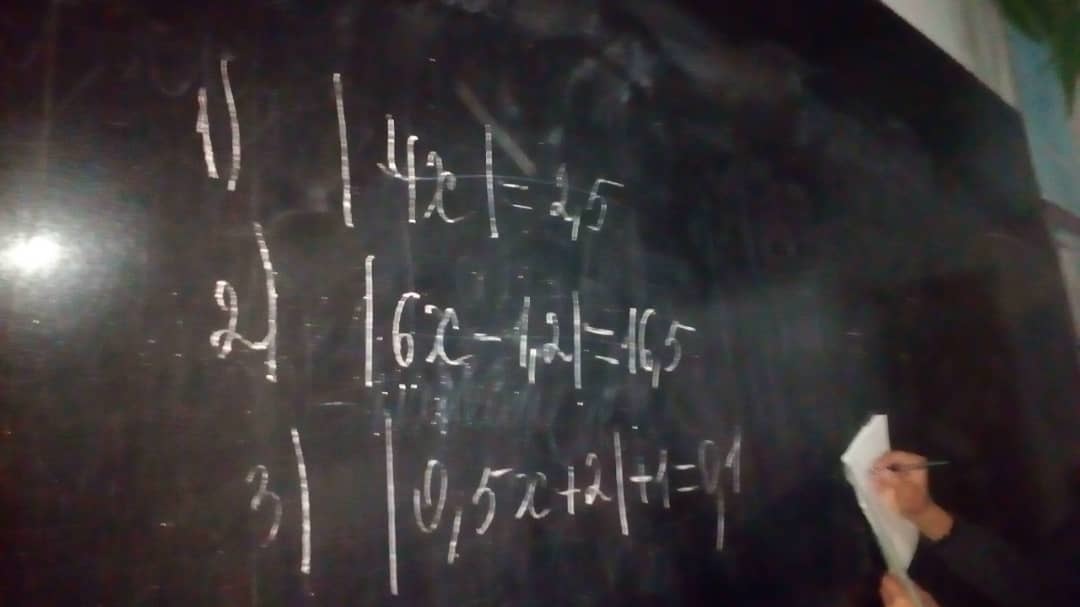 1) |4x|=2,5
2) |6x-1,2|=16,5
3) |0,5x+2|+1=0,1